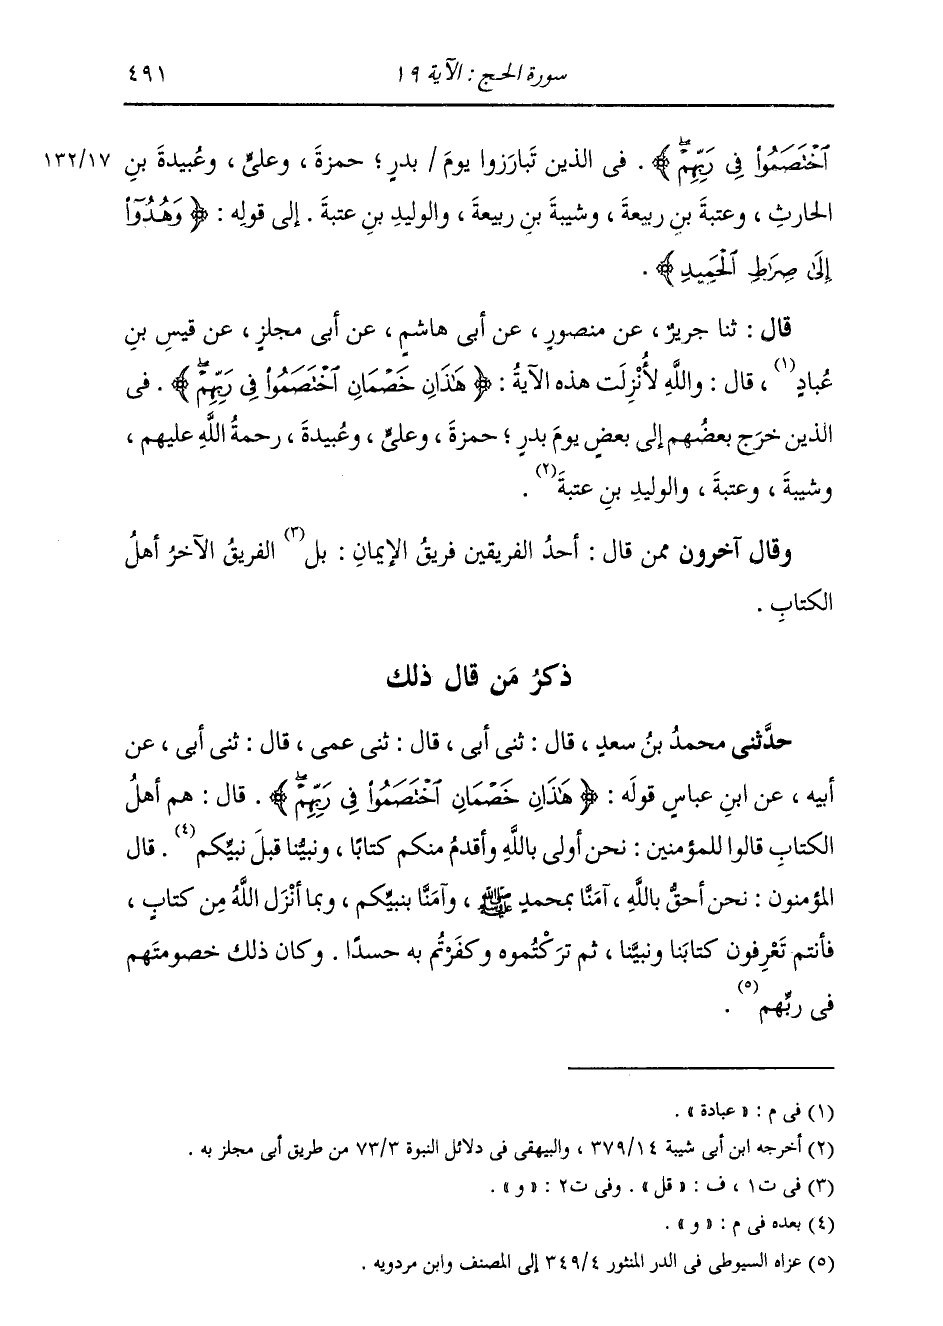 سورة الحج : الآية ١٩ ٤٩١
ٱخْتَصَمُوا۟ فِى رَبِّهِمْۖ ﴾ . فى الذين تَبارَزوا يومَ / بدرٍ ؛ حمزةَ ، وعلىٍّ ، وعُبيدةَ بنِ ١٣٢/١٧
الحارثِ ، وعتبةَ بنِ ربيعةَ ، وشيبةَ بنِ ربيعةَ ، والوليدِ بنِ عتبةَ . إلى قولِه : ﴿ وَهُدُوٓا۟
إِلَىٰ صِرَٰطِ ٱلْحَمِيدِ ﴾ .
قال : ثنا جريرٌ ، عن منصورٍ ، عن أبى هاشمٍ ، عن أبى مجلزٍ ، عن قيسِ بنِ
عُبادٍ(١) ، قال : واللَّهِ لأُنْزِلَت هذه الآيةُ : ﴿ هَٰذَانِ خَصْمَانِ ٱخْتَصَمُوا۟ فِى رَبِّهِمْۖ ﴾ . فى
الذين خرَج بعضُهم إلى بعضٍ يومَ بدرٍ ؛ حمزةَ ، وعلىٍّ ، وعُبيدةَ ، رحمةُ اللَّهِ عليهم ،
وشيبةَ ، وعتبةَ ، والوليدِ بنِ عتبةَ(٢) .
وقال آخرون ممن قال : أحدُ الفريقين فريقُ الإيمانِ : بل(٣) الفريقُ الآخرُ أهلُ
الكتابِ .
ذكرُ مَن قال ذلك
حدَّثنى محمدُ بنُ سعدٍ ، قال : ثنى أبى ، قال : ثنى عمى ، قال : ثنى أبى ، عن
أبيه ، عن ابنِ عباسٍ قولَه : ﴿ هَٰذَانِ خَصْمَانِ ٱخْتَصَمُوا۟ فِى رَبِّهِمْۖ ﴾ . قال : هم أهلُ
الكتابِ قالوا للمؤمنين : نحن أولى باللَّهِ وأقدمُ منكم كتابًا ، ونبيُّنا قبلَ نبيِّكم(٤) . قال
المؤمنون : نحن أحقُّ باللَّهِ ، آمَنَّا بمحمدٍ ﷺ ، وآمَنَّا بنبيِّكم ، وبما أنْزَل اللَّهُ مِن كتابٍ ،
فأنتم تَعْرِفون كتابَنا ونبيَّنا ، ثم ترَكْتُموه وكفَرْتُم به حسدًا . وكان ذلك خصومتَهم
فى ربِّهم(٥) .
(١) فى م : « عبادة » .
(٢) أخرجه ابن أبى شيبة ٣٧٩/١٤ ، والبيهقى فى دلائل النبوة ٧٣/٣ من طريق أبى مجلز به .
(٣) فى ت١ ، ف : « قل » . وفى ت٢ : « و » .
(٤) بعده فى م : « و » .
(٥) عزاه السيوطى فى الدر المنثور ٣٤٩/٤ إلى المصنف وابن مردويه .